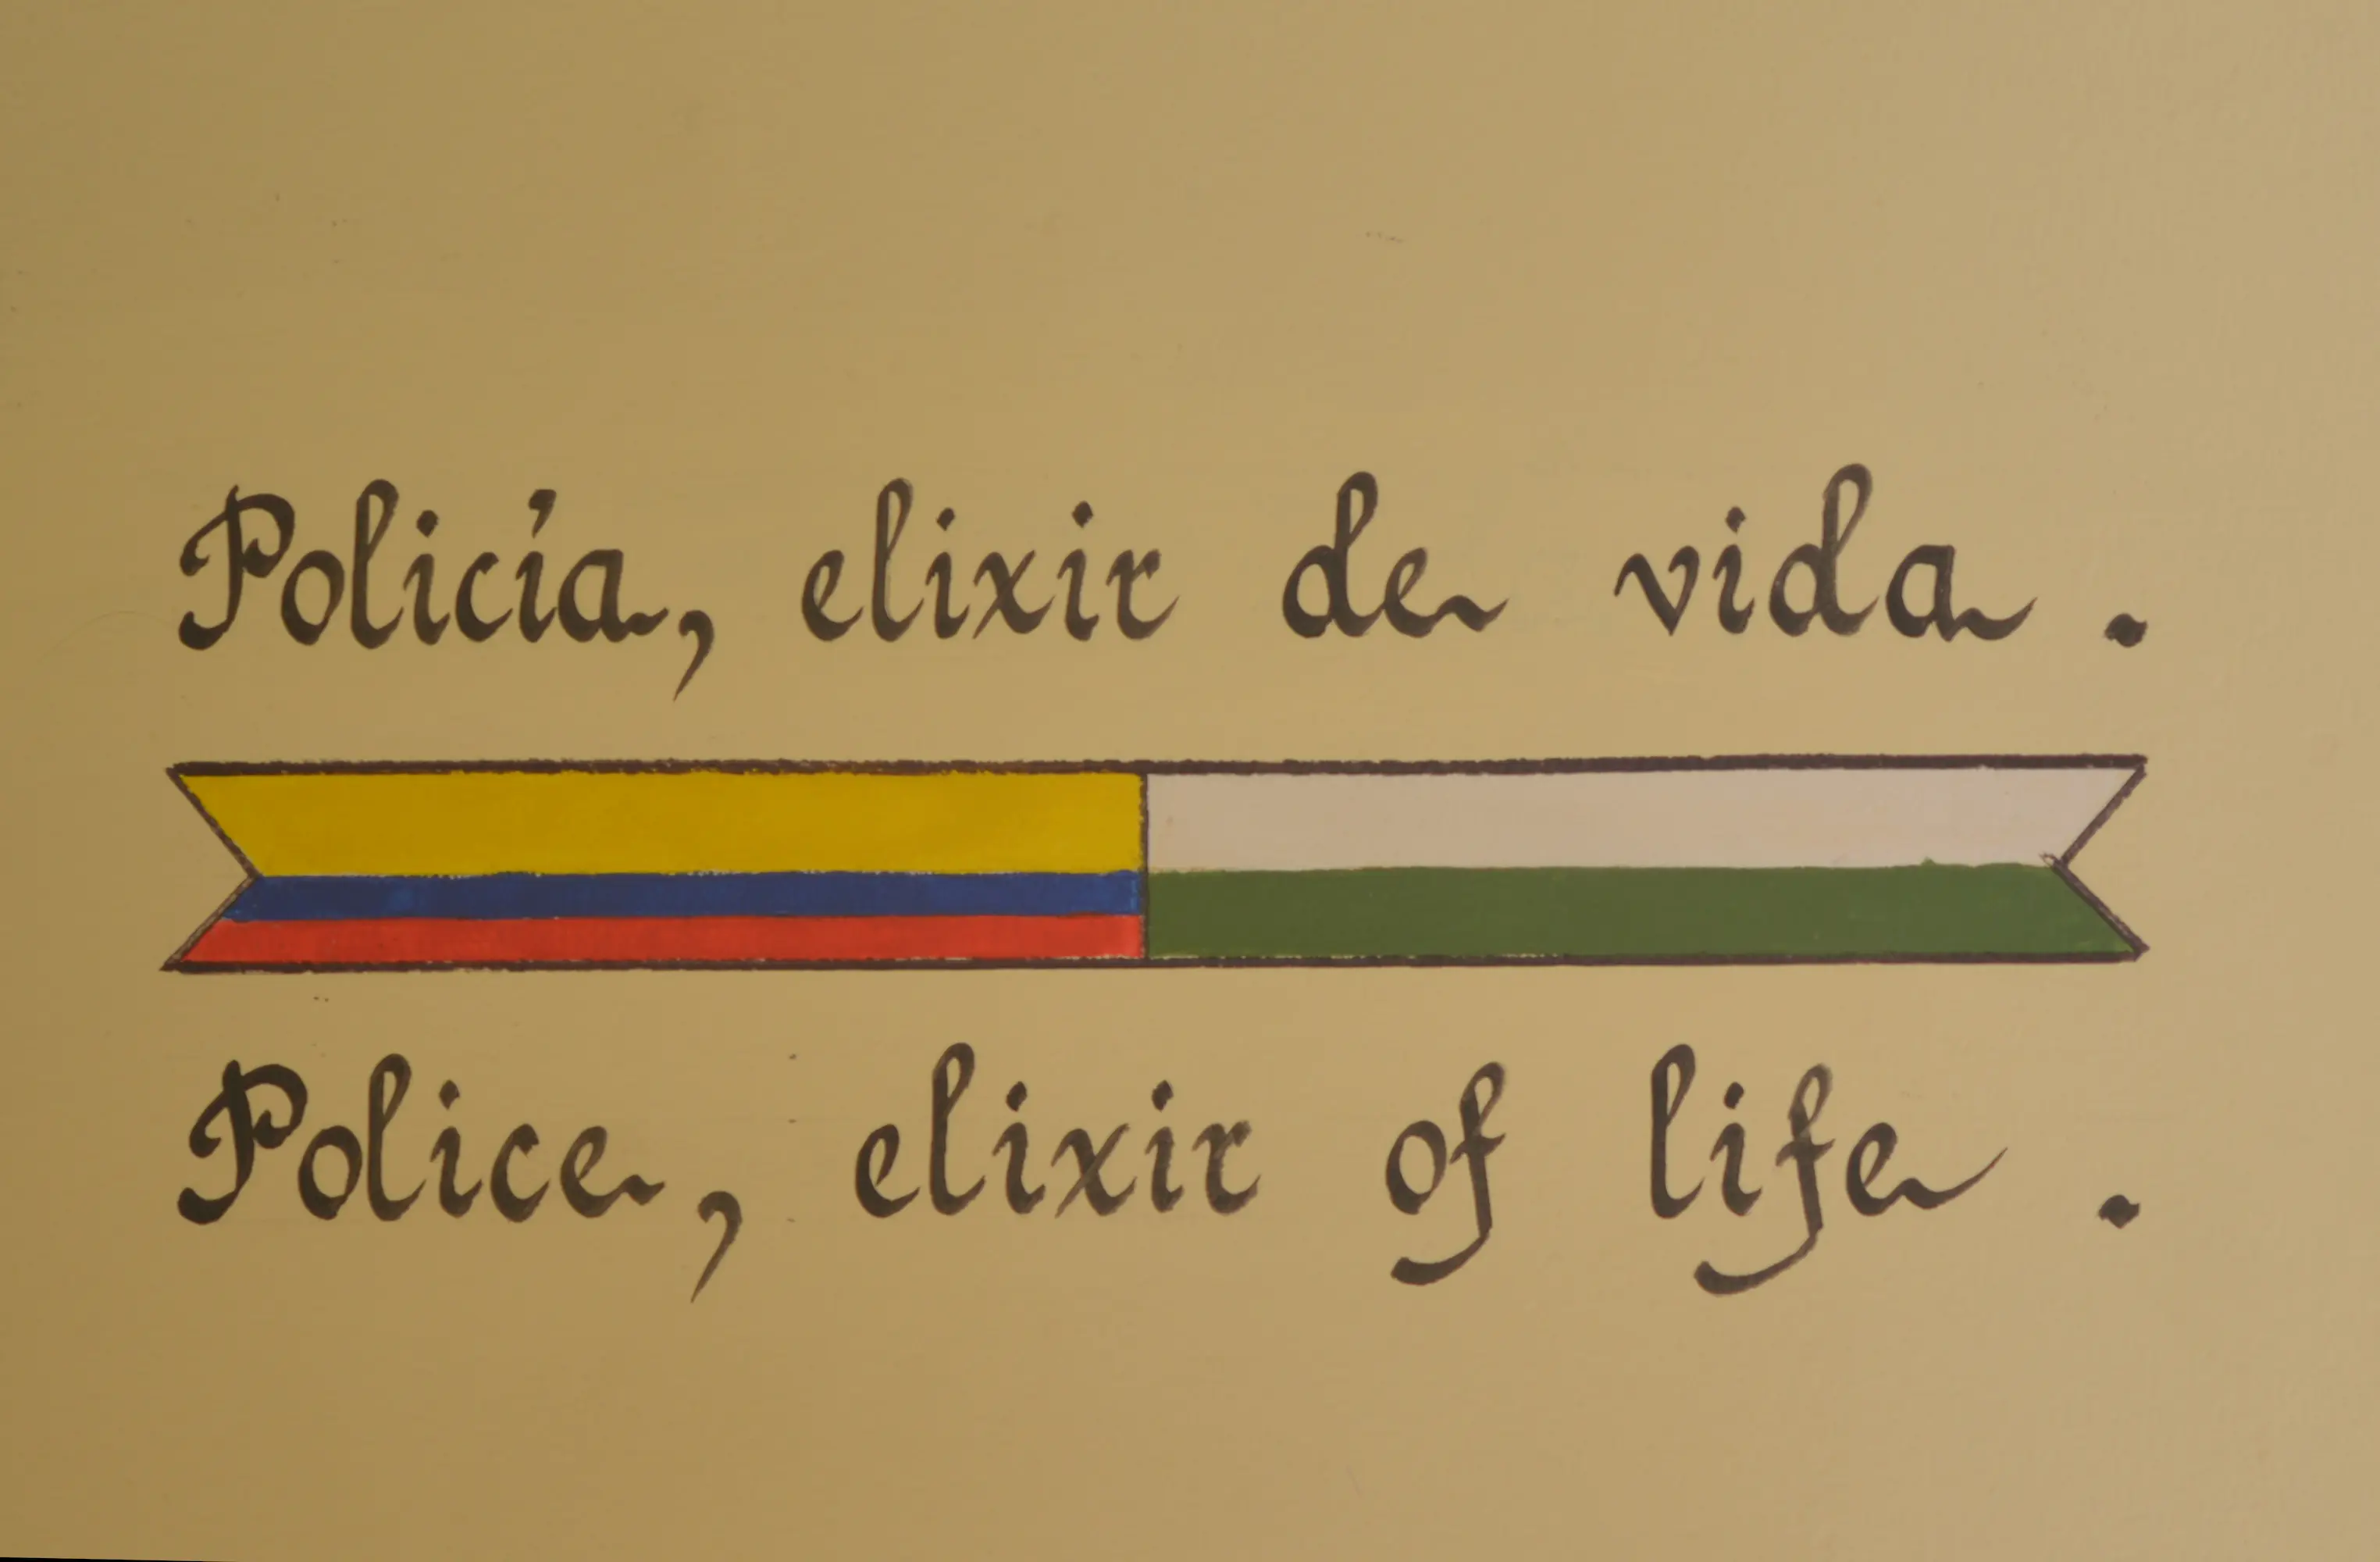 Policía, elixir de vida.
Police, elixir of life.